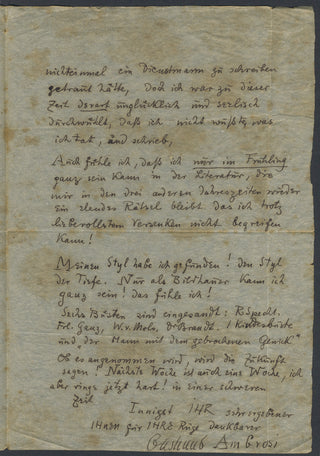 nichteinmal ein Dienstmann zu schreiben
getraut hätte, Doch ich war zu dieser
Zeit derart unglücklich und seelisch
durchwühlt, daß ich nicht wußte, was
ich tat, und schrieb,
Auch fühle ich, daß ich nur im Frühling
ganz sein kann in der Literatur, die
mir in den drei anderen Jahreszeiten wieder
ein elendes Rätsel bleibt Das ich trotz
liebevollstem Versenken nicht begreifen
kann!
Meinen Styl habe ich gefunden! den Styl
der Tiefe. Nur als Bildhauer kann ich
ganz sein! das fühle ich!
Sechs Büsten sind eingesandt: R. Specht.
Frl. Ganz, W. v. Molo, Dr Brandt. 1 Kinderbüste
und „der Mann mit dem gebrochenen Genick"
Ob es angenommen wird, wird die Zukunft
sagen! Nächste Woche ist auch eine Woche, ich
aber ringe jetzt hart! in einer schweren
Zeit
Innigst IHR sehr ergebener
IHNEN für IHRE Güte Dankbarer
Gustinus Ambrosi